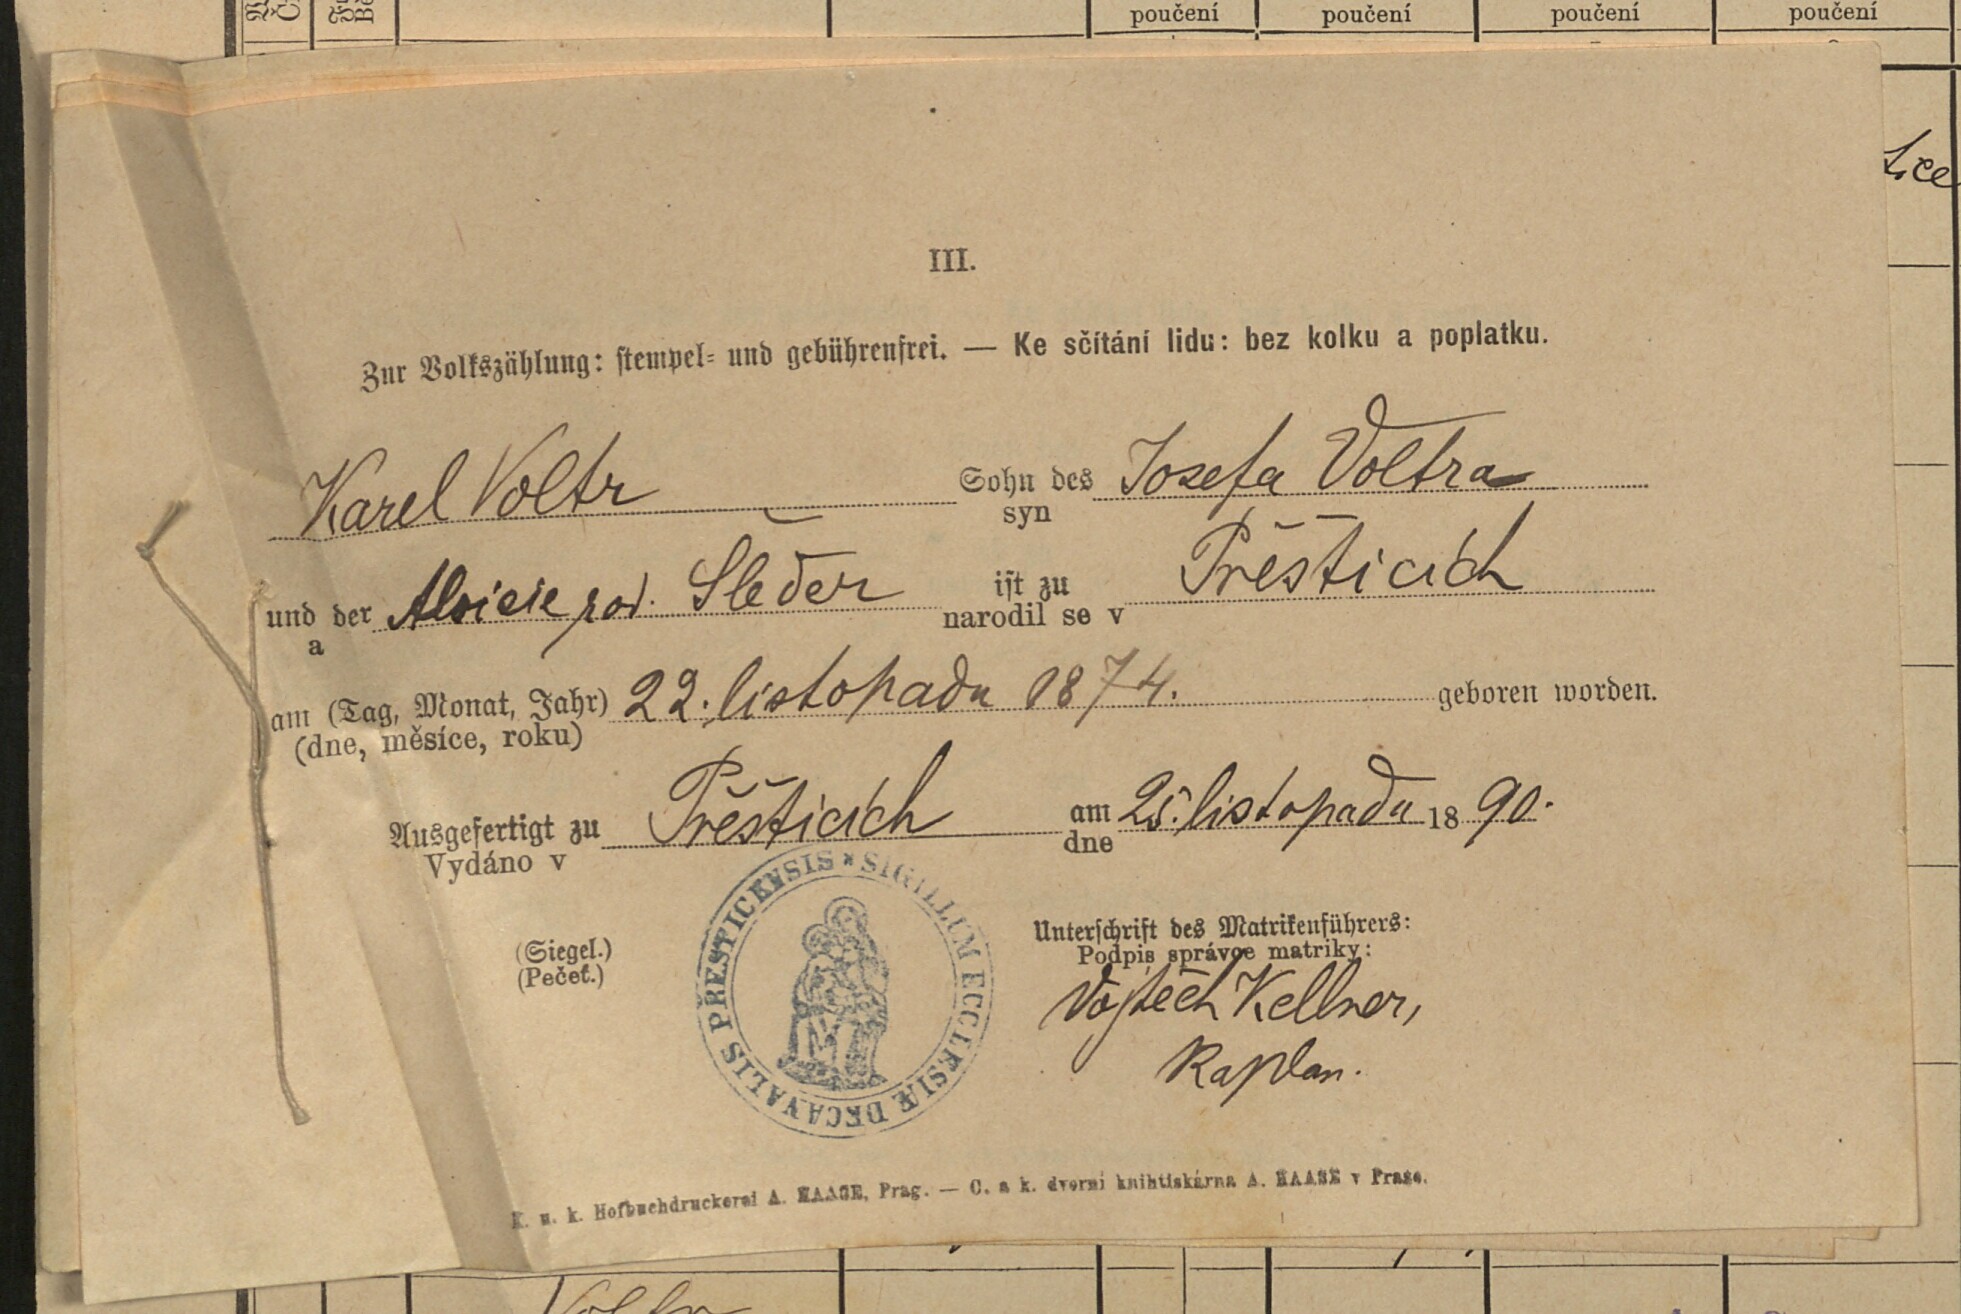 poučení poučení poučení poučení
III.
Zur Volkszählung: stempel- und gebührenfrei. — Ke sčítání lidu: bez kolku a poplatku.
Karel Voltr Sohn des Josefa Voltra
syn
und der Aloisie rod. Šleder ist zu Přešticích
a narodil se v
am (Tag, Monat, Jahr) 22. listopadu 1874. geboren worden.
(dne, měsíce, roku)
Ausgefertigt zu Přešticích am 25. listopadu 1890.
Vydáno v dne
SIGILLUM ECCLESIÆ DECANALIS PŘESTICENSIS *
(Siegel.)
(Pečeť.)
Unterschrift des Matrikenführers:
Podpis správce matriky:
Vojtěch Kellner,
Kaplan.
K. u. k. Hofbuchdruckerei A. HAASE, Prag. — C. a k. dvorní knihtiskárna A. HAASE v Praze.
Voltr